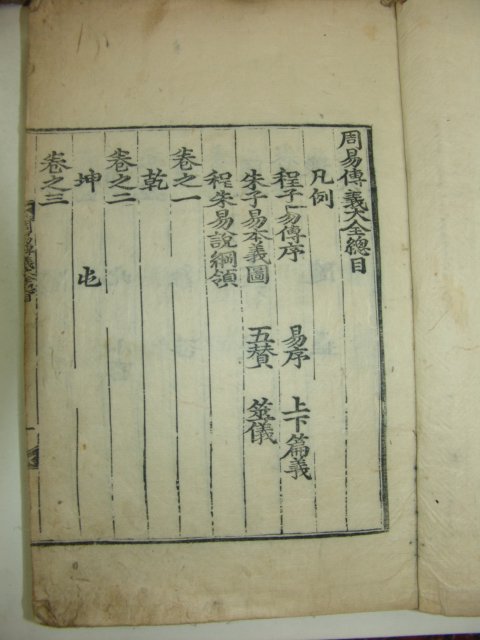 周易傳義大全總目
凡例
程子易傳序 易序 上下篇義
朱子易本義圖 五賛 筮儀
程朱易說綱領
卷之一
乾
卷之二
坤 屯
卷之三